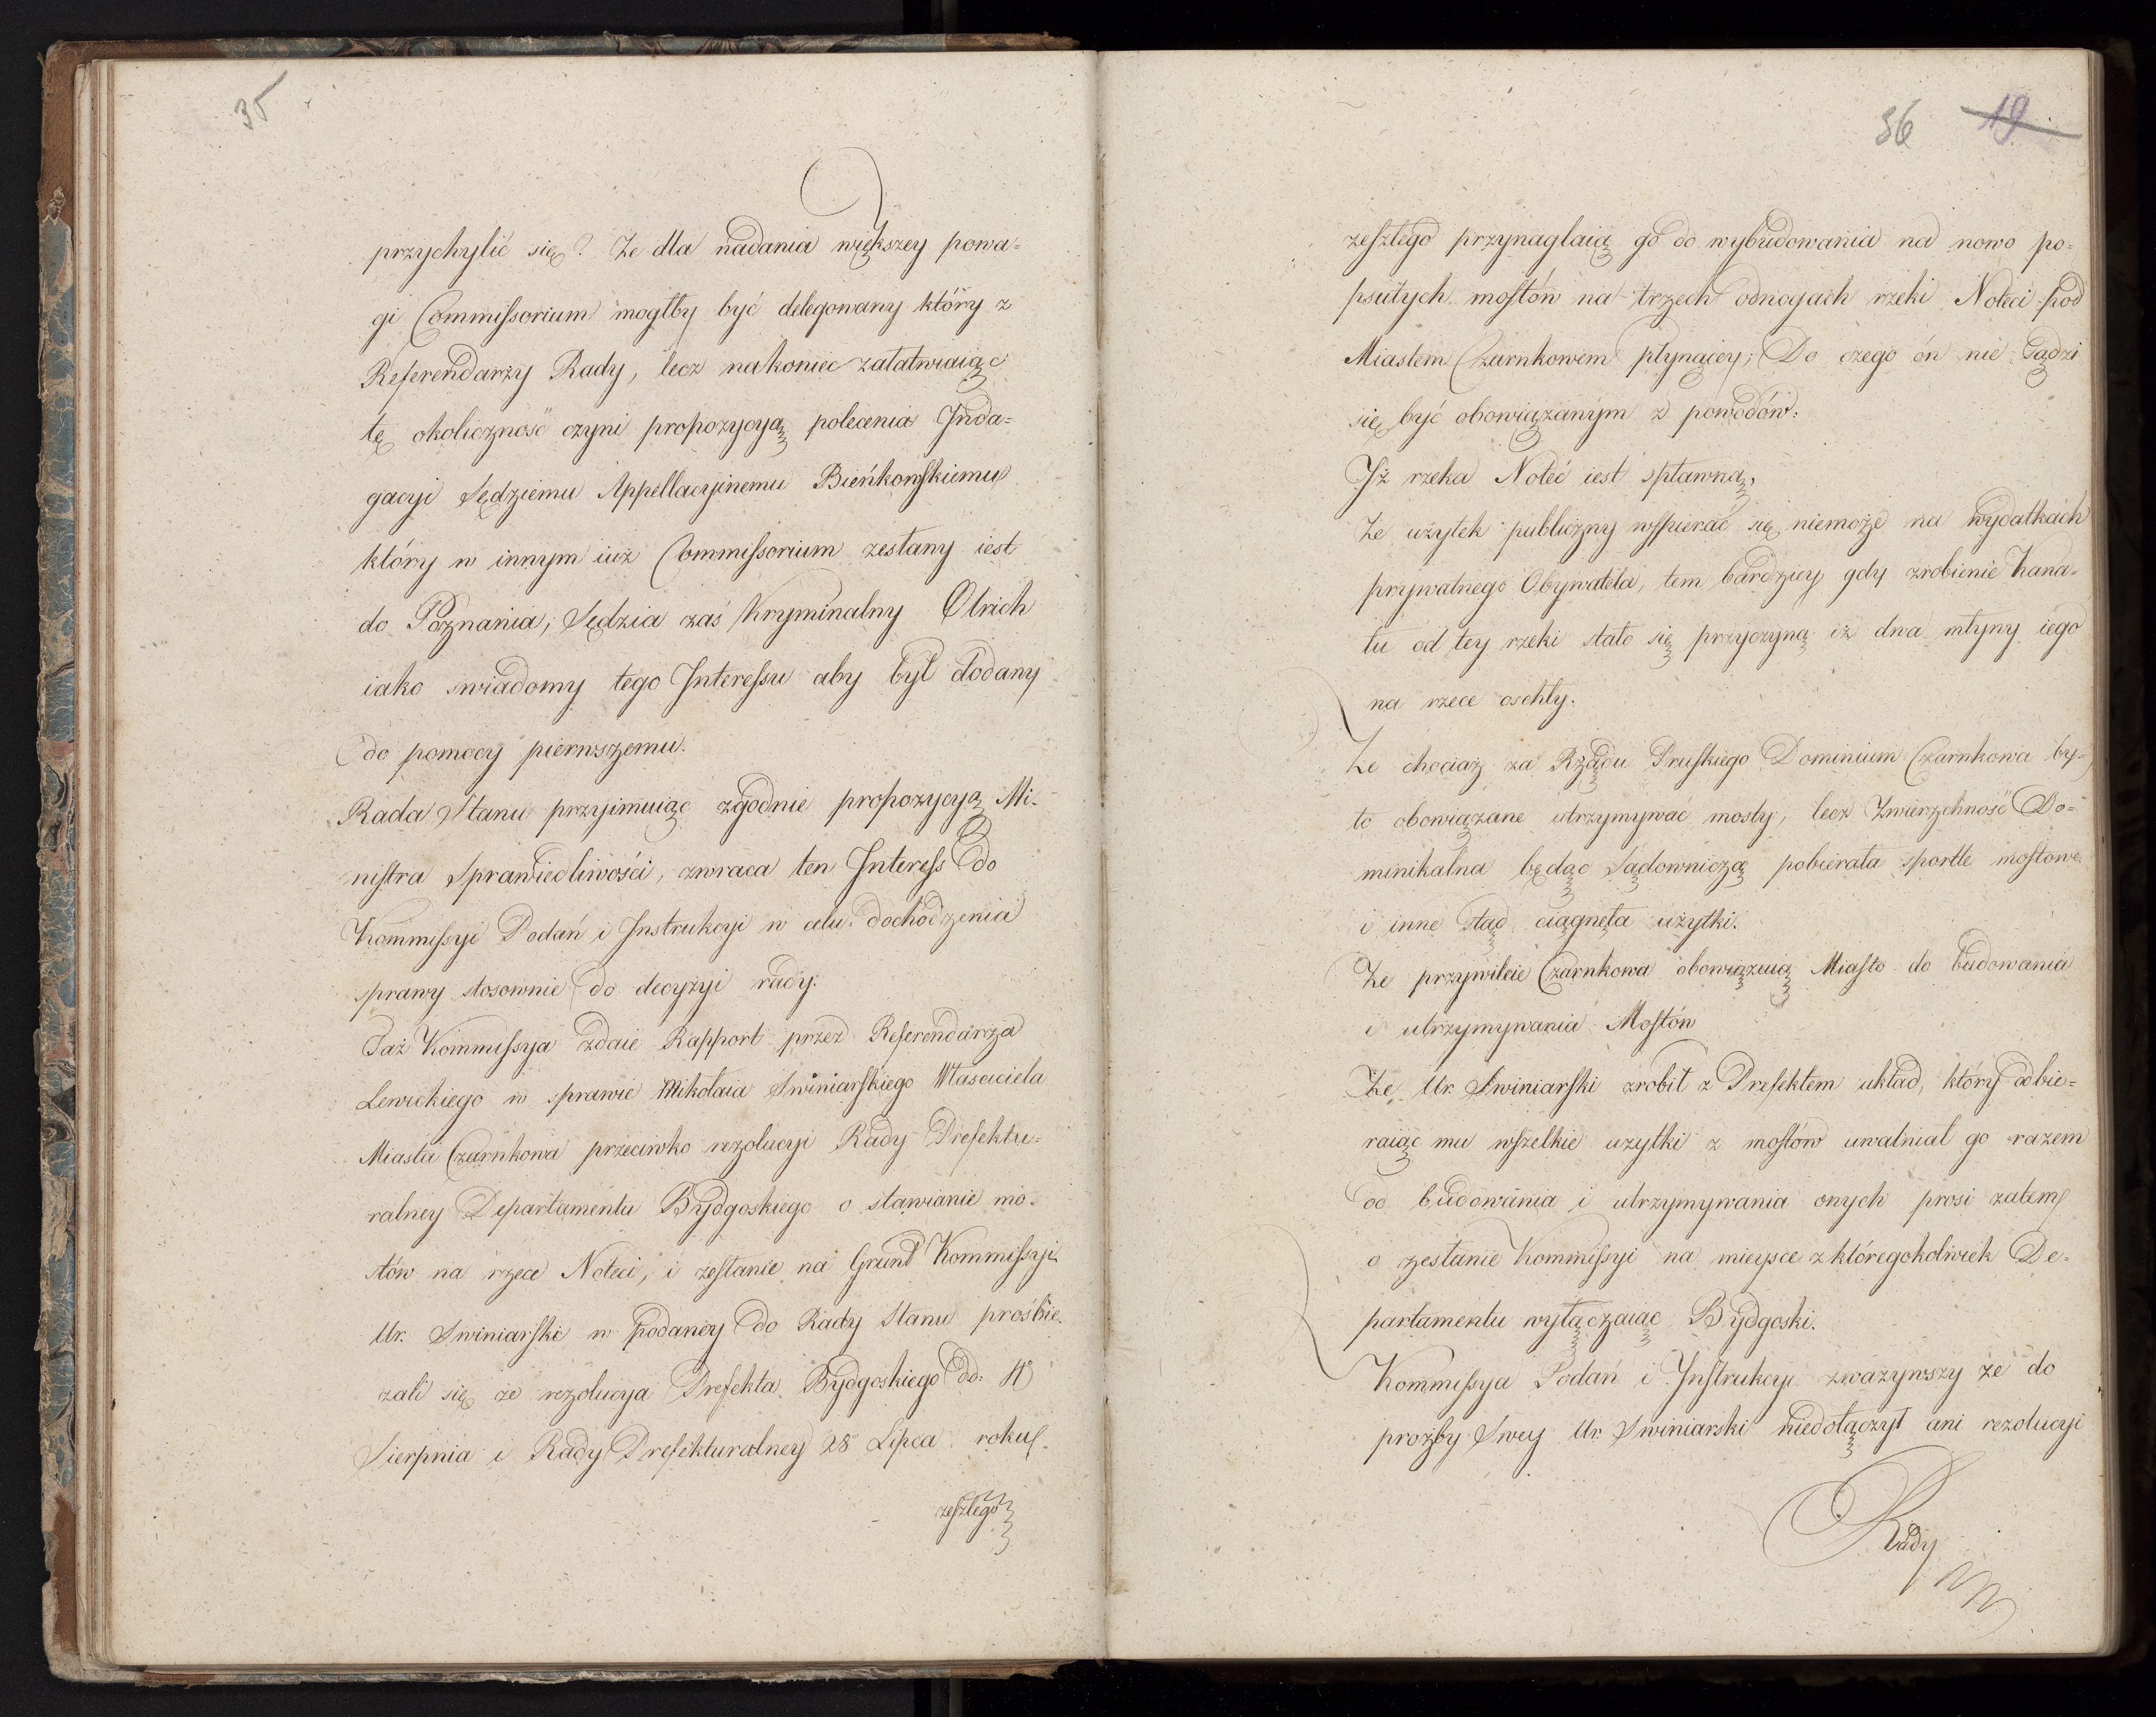 35
przychylić się? Ze dla nadania większey powa=
gi Commissorium mogłby być delegowany który z
Referendarzy Rady, lecz nakoniec załatwiaiąc
tę okoliczność czyni propozycyą polecenia Inda=
gacyi Sędziemu Appellacyinemu Bieńkowskiemu
który w innym iuż Commissorium zesłany iest
do Poznania, Sędzia zaś Kryminalny Olrich
iako swiadomy tego Interessu aby był dodany
do pomocy pierwszemu.
Rada Stanu przyimuiąc zgodnie propozycyą Mi-
nistra Sprawiedliwości, zwraca ten Interess do
Kommissyi Podań i Instrukcyi w celu dochodzenia
sprawy stosownie do decyzyi rady.
Taż Kommissya zdaie Rapport przez Referendarza
Lewickiego w sprawie Mikołaia Swiniarskiego Własciciela
Miasta Czarnkowa przeciwko rezolucyi Rady Prefektu=
ralney Departamentu Bydgoskiego o stawianie mo-
stów na rzece Noteci, i zesłanie na Grunt Kommissyi
Ur. Swiniarski w podaney do Rady Stanu prośbie
zali się że rezolucya Prefekta Bydgoskiego dd: 4º
Sierpnia i Rady Prefekturalney 28 Lipca roku
zeszłego
36 19
zeszłego przynaglaią go do wybudowania na nowo po=
psutych mostów na trzech odnogach rzeki Noteci pod
Miastem Czarnkowem płynącey; Do czego ón nie sądzi
się być obowiązanym z powodów:
Iż rzeka Noteć iest spławną,
Ze użytek publiczny wspierać się niemoże na wydatkach
prywatnego Obywatela, tem bardziey gdy zrobienie Kana=
łu od tey rzeki stało się przyczyną iż dwa młyny iego
na rzece oschły.
Ze chociaż za Rządu Pruskiego Dominium Czarnkowa by=
ło obowiązane utrzymywać mosty, lecz Zwierzchność Do=
minikalna będąc Sądowniczą pobierała sportle mostowe
i inne stąd ciągnęła użytki.
Ze przywileie Czarnkowa obowiązuią Miasto do budowania
i utrzymywania Mostów
Ze Ur. Swiniarski zrobił z Prefektem układ, który odbie=
raiąc mu wszelkie uzytki z mostów uwalniał go razem
od budowania i utrzymywania onych prosi zatem
o zesłanie Kommissyi na mieysce z któregokolwiek De-
partamentu wyłączaiąc Bydgoski.
Kommissya Podań i Instrukcyi zważywszy że do
prozby Swey Ur. Swiniarski niedołączył ani rezolucyi
Rady